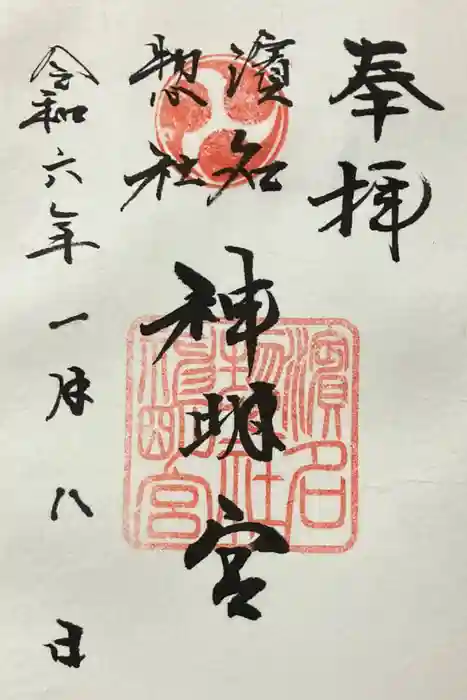 奉拝
濱名
惣社
神明宮
令和六年一月八日
濱名
惣社神
明宮